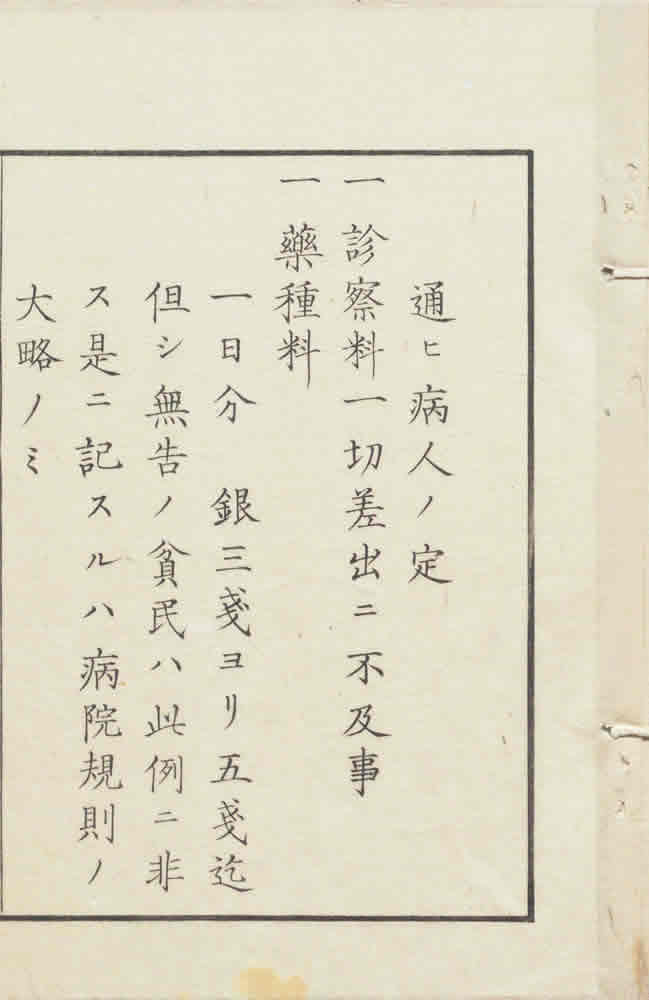 通ヒ病人ノ定
一診察料一切差出ニ不及事
一藥種料
一日分　銀三戔ヨリ五戔迄
但シ無告ノ貧民ハ此例ニ非
ス是ニ記スルハ病院規則ノ
大略ノミ